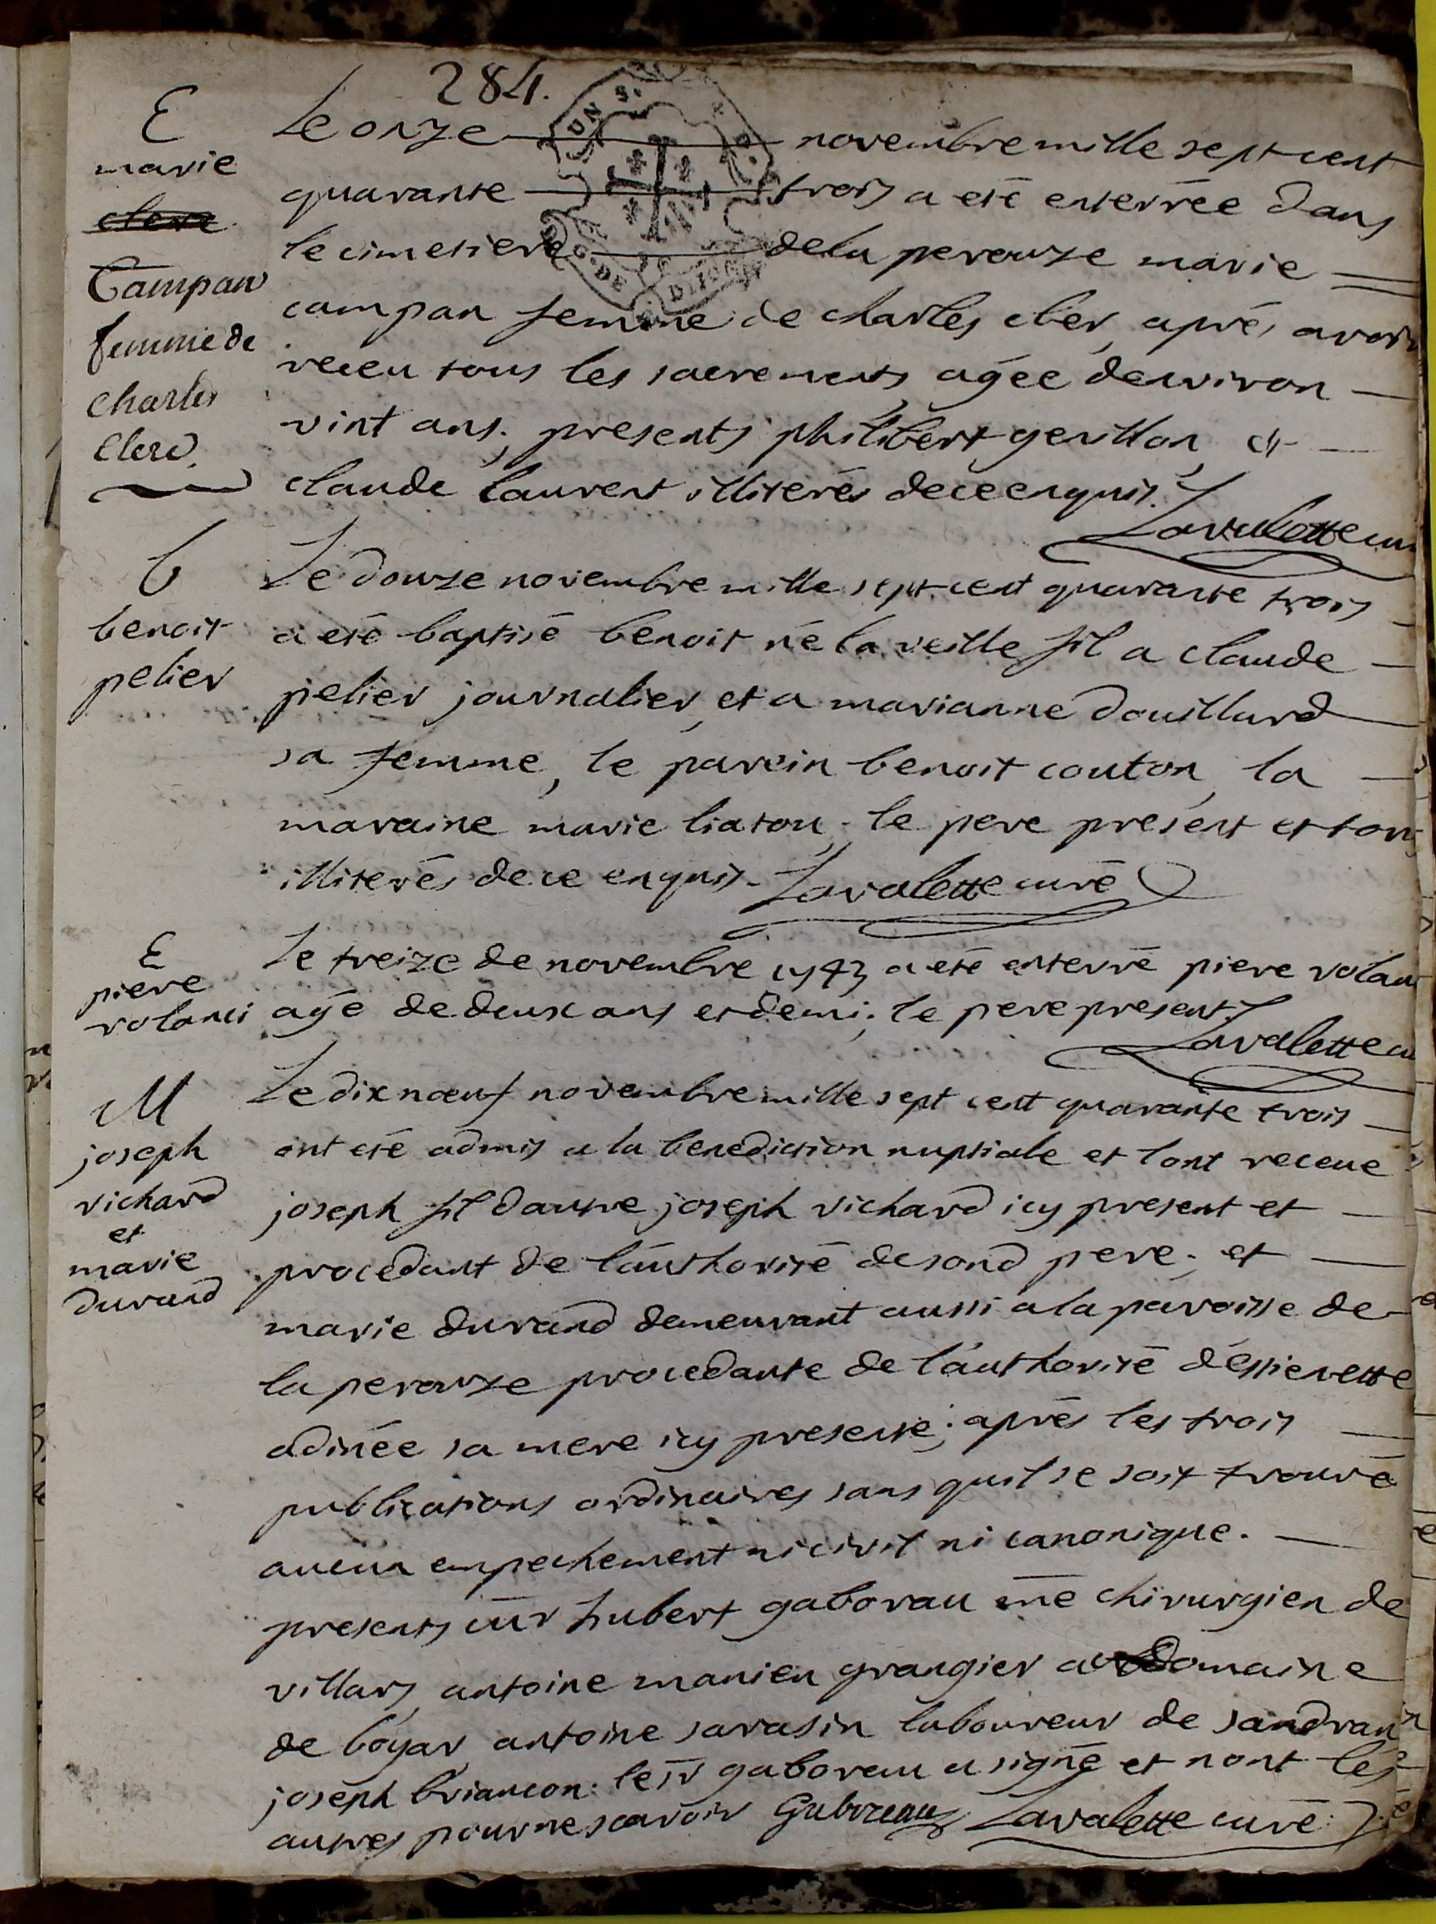 284.
E
marie
Campan
femme de
Charles
Clerc.
Le onze novembre mille sept cent
quarante trois a eté enterrée dans
le cimetiere de la perouze marie
campan femme de charles cler, aprés avoir
receu tous les sacrements, agée denviron
vint ans. presents philibert genillon, et
claude laurent illiterés de ce enquis.
Lavalette cu
b
benoit
pelier
Le douze novembre mille sept cent quarante trois
a eté baptisé benoit né la veille fil a claude
pelier journalier, et a marianne douillard
sa femme, le parein benoit couton, la
maraine marie liaton, le pere present et tous
illiterés de ce enquis. Lavalette curé
E
piere
volanci
Le treize de novembre 1743 a eté enterré piere volan
agé de deux ans et demi; le pere present.
Lavalette cu
M
joseph
richard
et
marie
durand
Le dix nœuf novembre mille sept cent quarante trois
ont eté admis a la benediction nuptiale et lont receue
joseph fil dautre joseph richard icy present et
procedant de l'authorité de sond pere; et
marie durand demeurant aussi a la paroisse de
la perouze procedante de l'authorité d'éttienette
adinée sa mere icy presente; aprés les trois
publications ordinaires sans quil se soit trouvé
aucun empechement ni civil ni canonique.
presents hubert gaborau me chirurgien de
villars, antoine manien grangier domaine
de boyar, antoine sarasin laboureur de sandran
joseph briancon: le sr gaboreau a signé et nont les
autres pour ne scavoir Gaboreau Lavalette curé